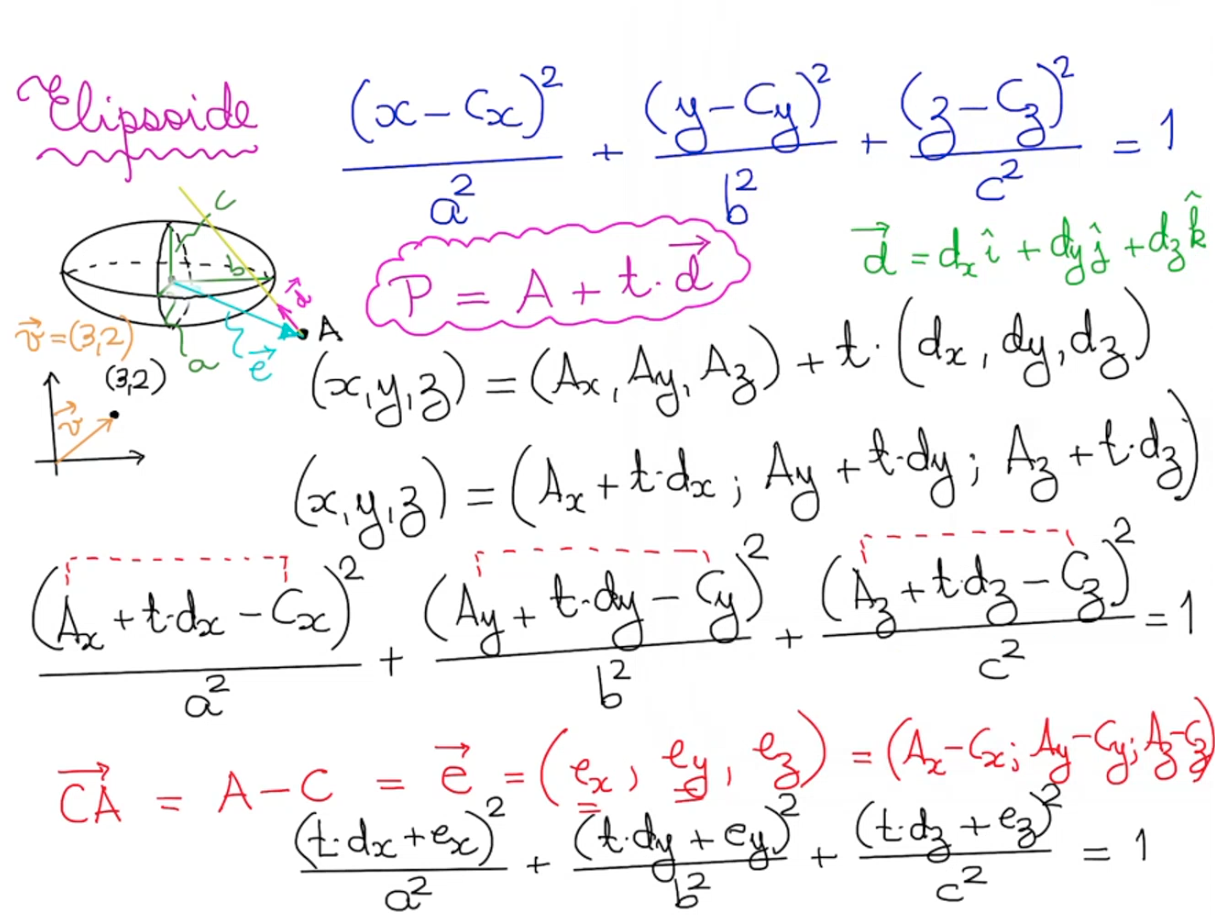 Elipsoide
(x - Cx)² / a² + (y - Cy)² / b² + (z - Cz)² / c² = 1
c
b
a
d⃗
e⃗
A
P = A + t·d⃗
d⃗ = dx î + dy ĵ + dz k̂
v⃗ = (3,2)
(3,2)
v⃗
(x,y,z) = (Ax, Ay, Az) + t·(dx, dy, dz)
(x,y,z) = (Ax + t·dx ; Ay + t·dy ; Az + t·dz)
(Ax + t·dx - Cx)² / a² + (Ay + t·dy - Cy)² / b² + (Az + t·dz - Cz)² / c² = 1
CA⃗ = A - C = e⃗ = (ex, ey, ez) = (Ax - Cx; Ay - Cy; Az - Cz)
(t·dx + ex)² / a² + (t·dy + ey)² / b² + (t·dz + ez)² / c² = 1